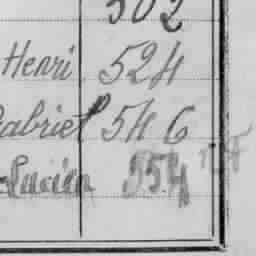 502
Henri 524
Gabriel 546
Lucien 554